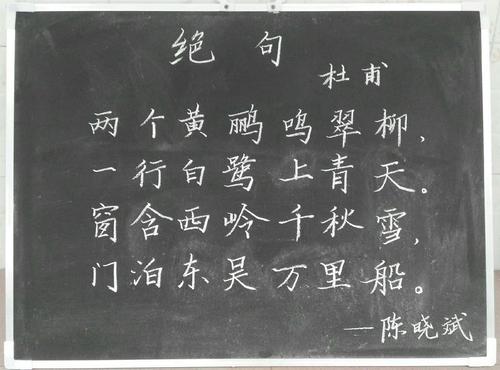 绝句
杜甫
两个黄鹂鸣翠柳，
一行白鹭上青天。
窗含西岭千秋雪，
门泊东吴万里船。
—陈晓斌